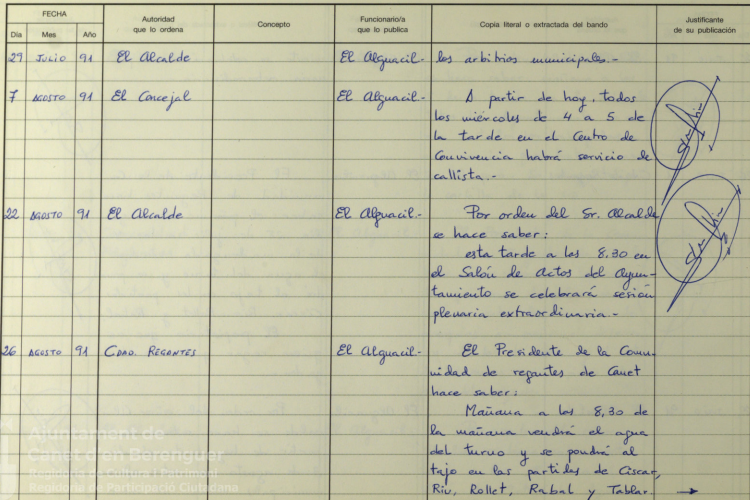 FECHA
Autoridad que lo ordena
Concepto
Funcionario/a que lo publica
Copia literal o extractada del bando
Justificante de su publicación
Día Mes Año
29 JULIO 91 El Alcalde El Alguacil.- los arbitrios municipales.-
7 AGOSTO 91 El Concejal El Alguacil.- A partir de hoy, todos
los miércoles de 4 a 5 de
la tarde en el Centro de
Convivencia habrá servicio de
callista.-
22 AGOSTO 91 El Alcalde El Alguacil.- Por orden del Sr. Alcalde
se hace saber:
esta tarde a las 8,30 en
el Salón de Actos del Ayun-
tamiento se celebrará sesión
plenaria extraordinaria.-
26 AGOSTO 91 CDAD. REGANTES El Alguacil- El Presidente de la Comu-
nidad de regantes de Canet
hace saber:
Mañana a las 8,30 de
la mañana vendrá el agua
del turno y se pondrá al
tajo en las partidas de Ciscar,
Riu, Rollet, Rabal y Tablar.
Ajuntament de
Canet d'en Berenguer
Regidoria de Cultura i Patrimoni
Regidoria de Participació Ciutadana